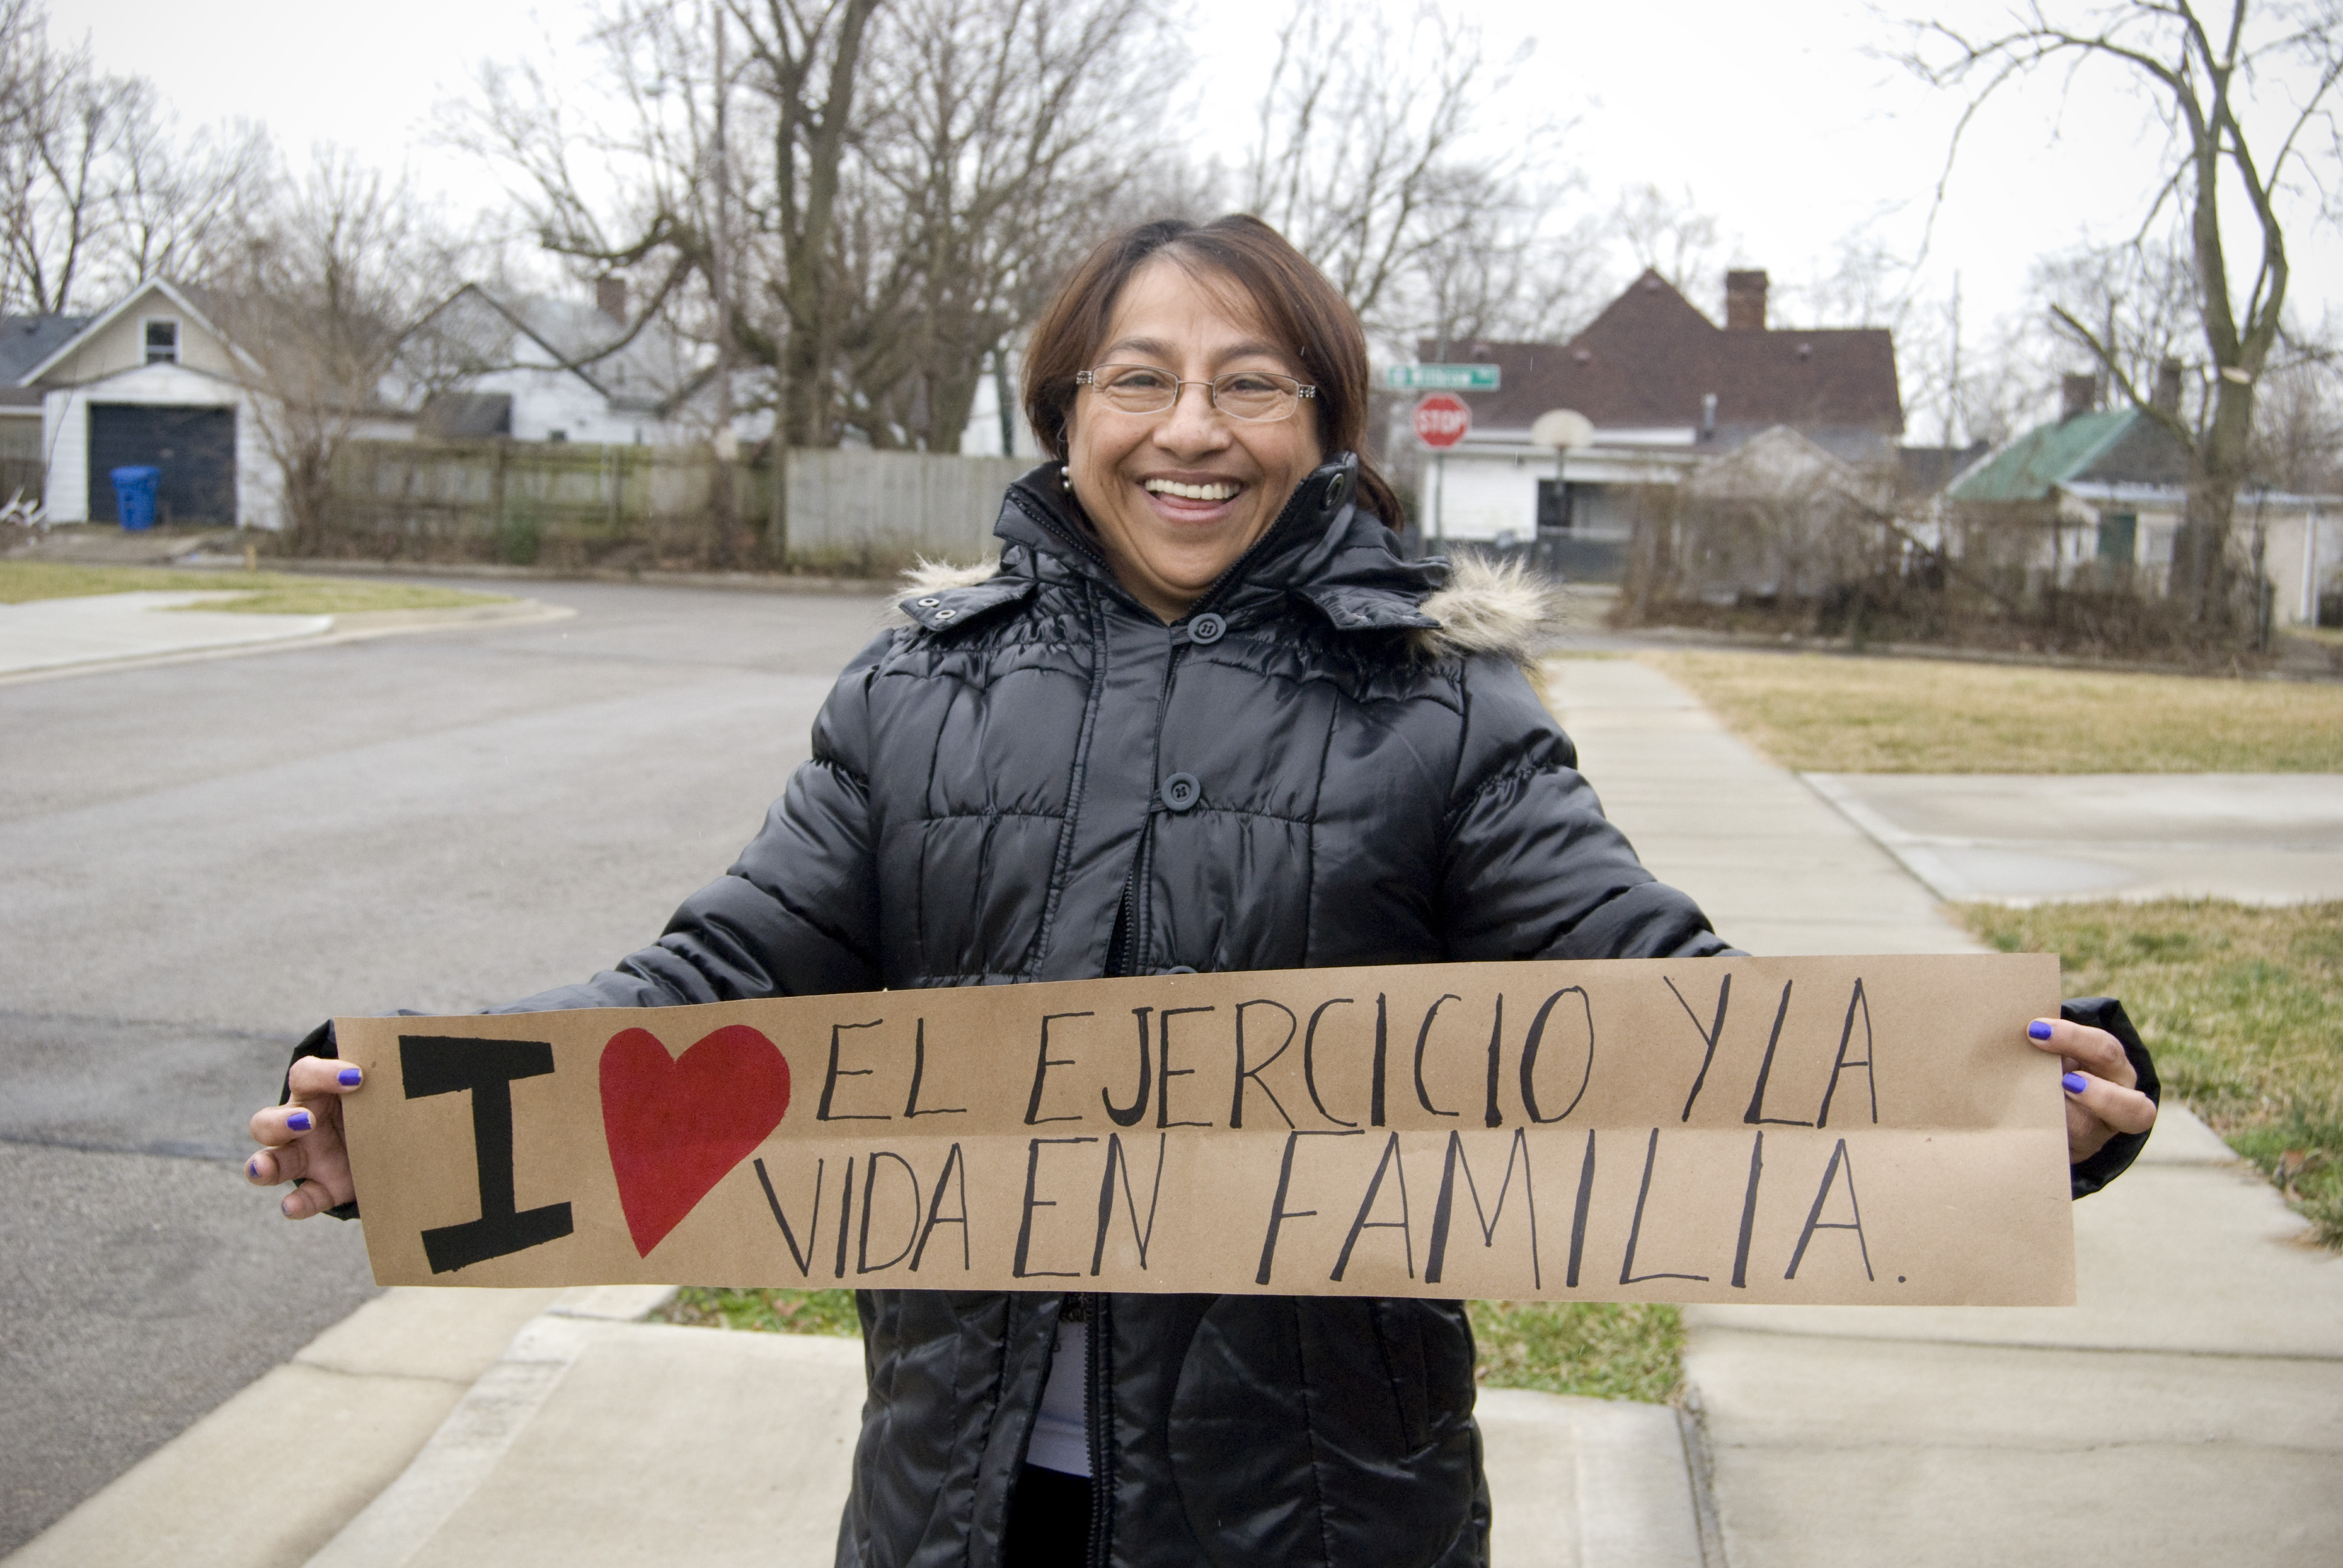 I ♥ EL EJERCICIO Y LA
VIDA EN FAMILIA.
STOP